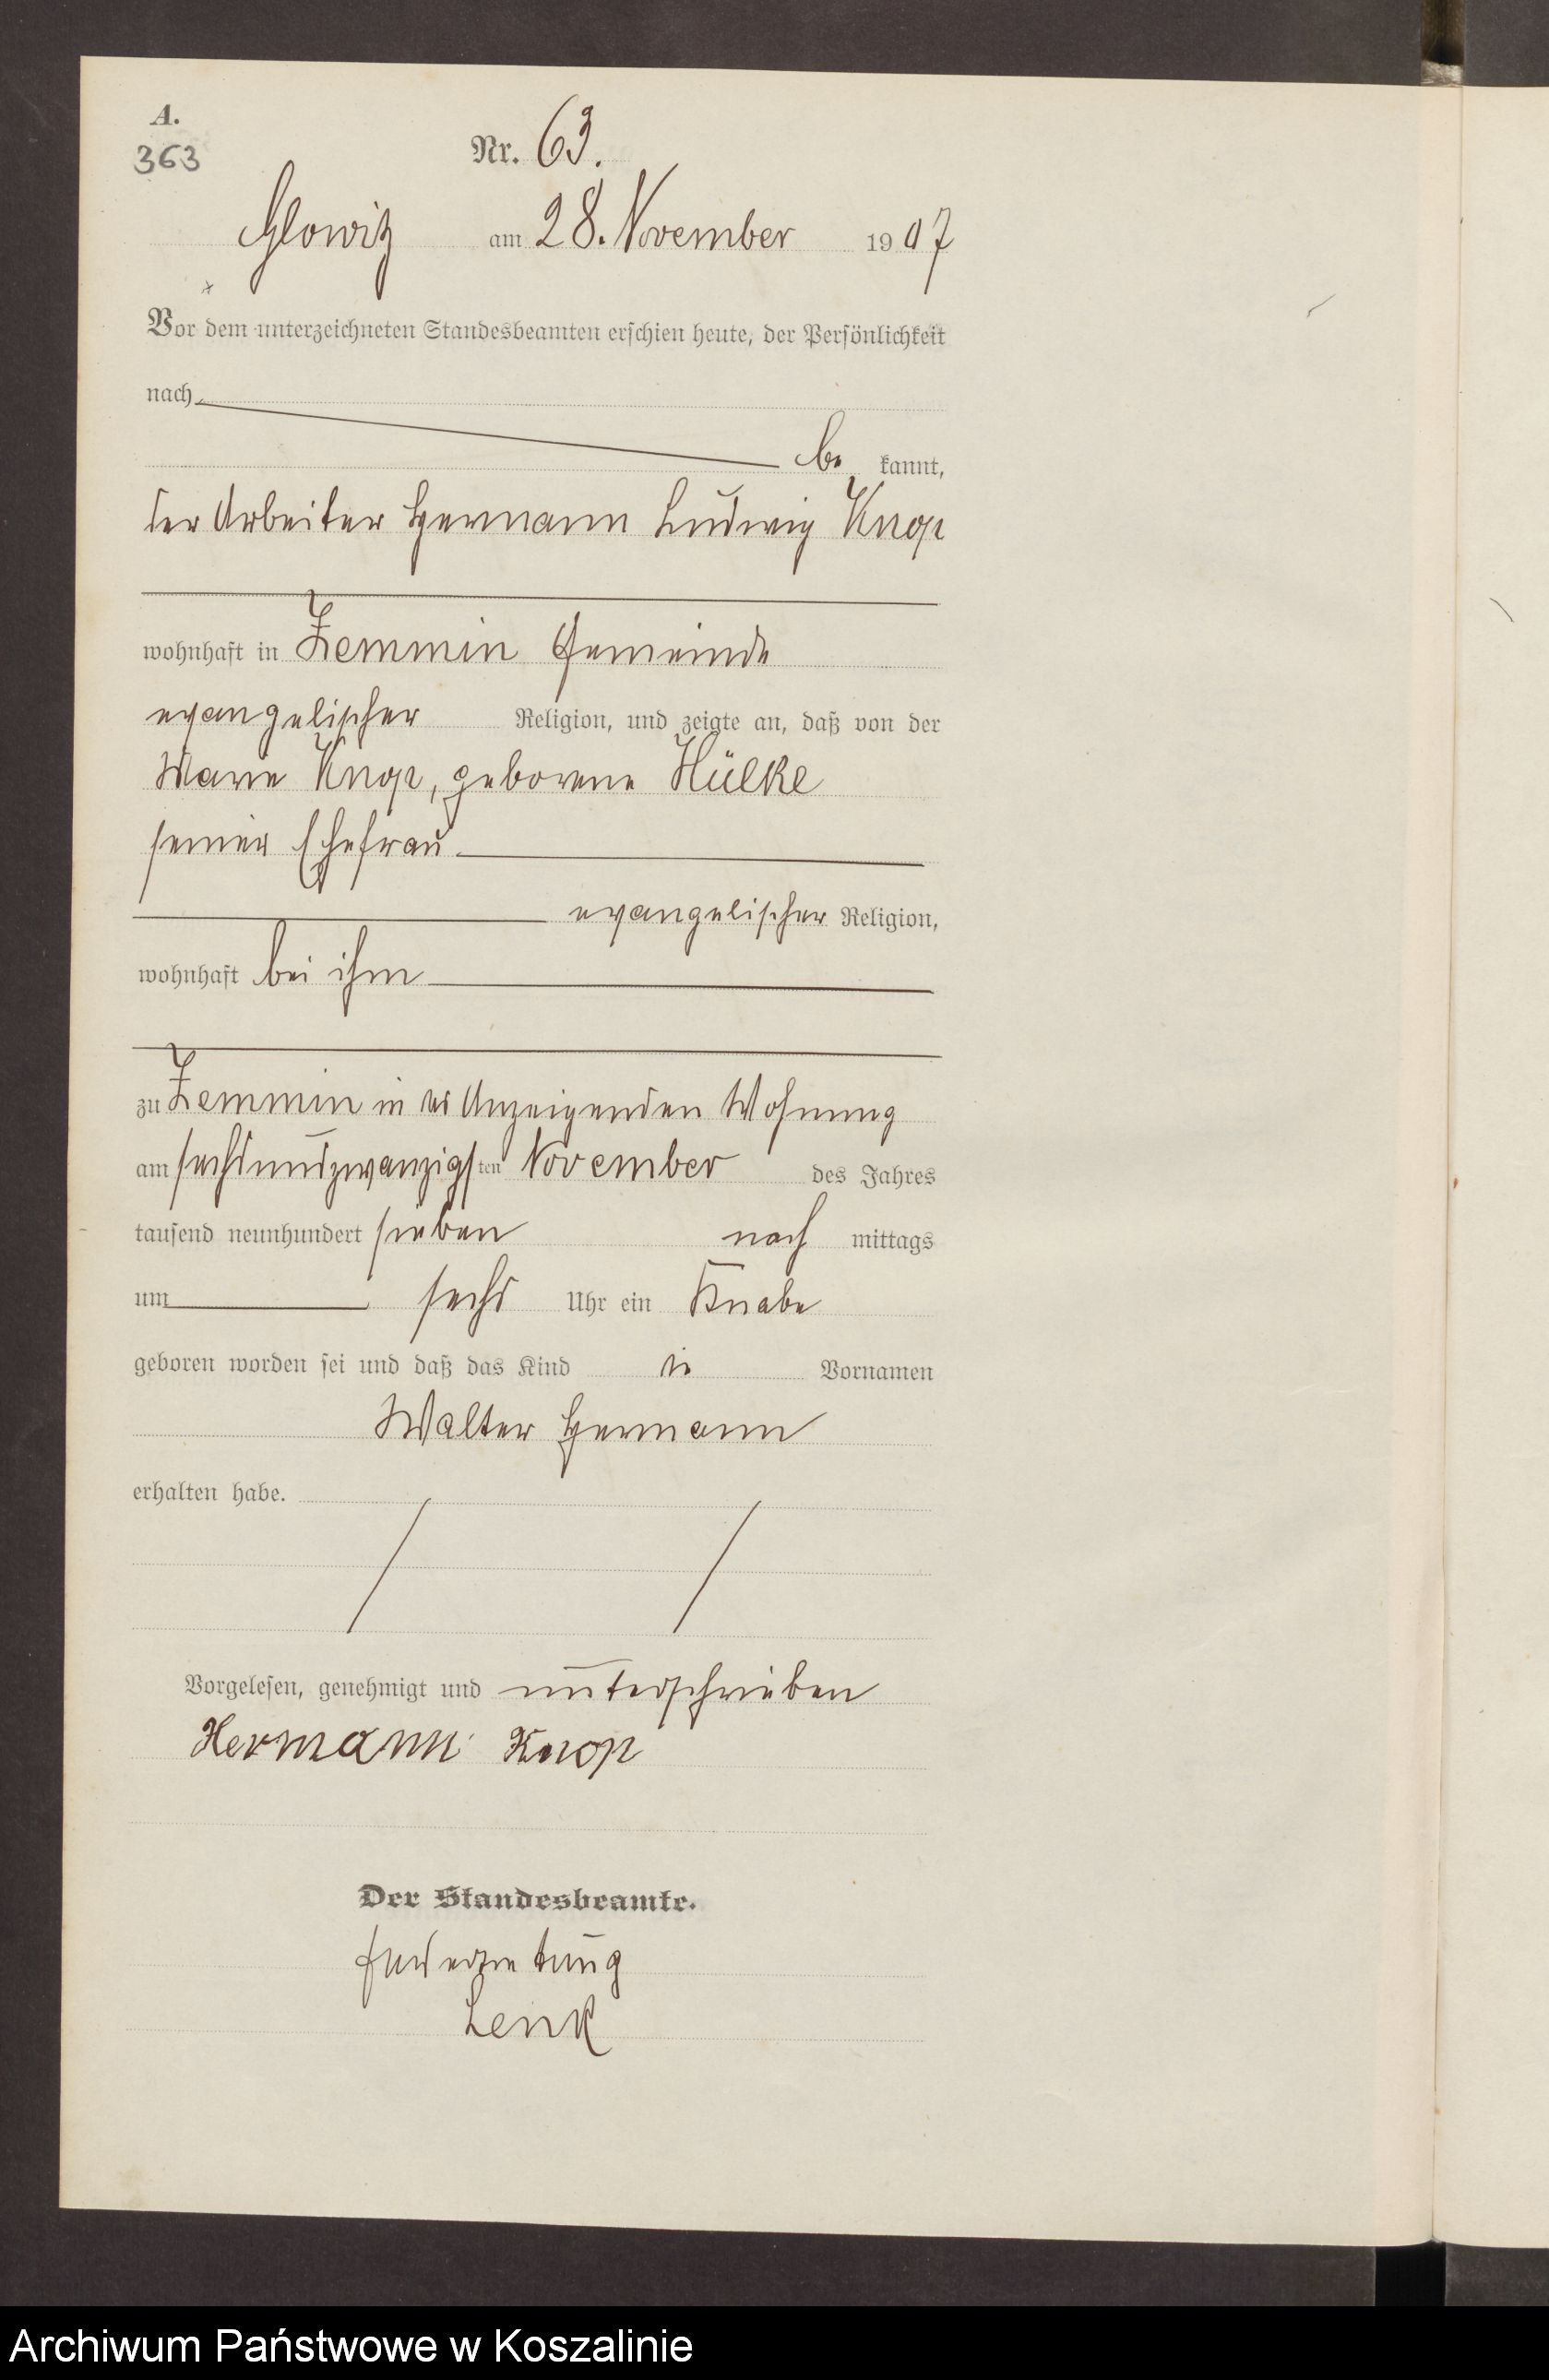 A.
363
Nr. 63.
Glowitz am 28. November 1907
Vor dem unterzeichneten Standesbeamten erschien heute, der Persönlichkeit
nach
be kannt,
der Arbeiter Hermann Ludwig Knop
wohnhaft in Zemmin Gemeinde
evangelischer Religion, und zeigte an, daß von der
Marie Knop, geborene Hülke
seiner Ehefrau
evangelischer Religion,
wohnhaft bei ihm
zu Zemmin in des Anzeigenden Wohnung
am sechsundzwanzigsten November des Jahres
tausend neunhundert sieben nach mittags
um sechs Uhr ein Knabe
geboren worden sei und daß das Kind die Vornamen
Walter Hermann
erhalten habe.
Vorgelesen, genehmigt und unterschrieben
Hermann Knop
Der Standesbeamte.
Lenk
Archiwum Państwowe w Koszalinie